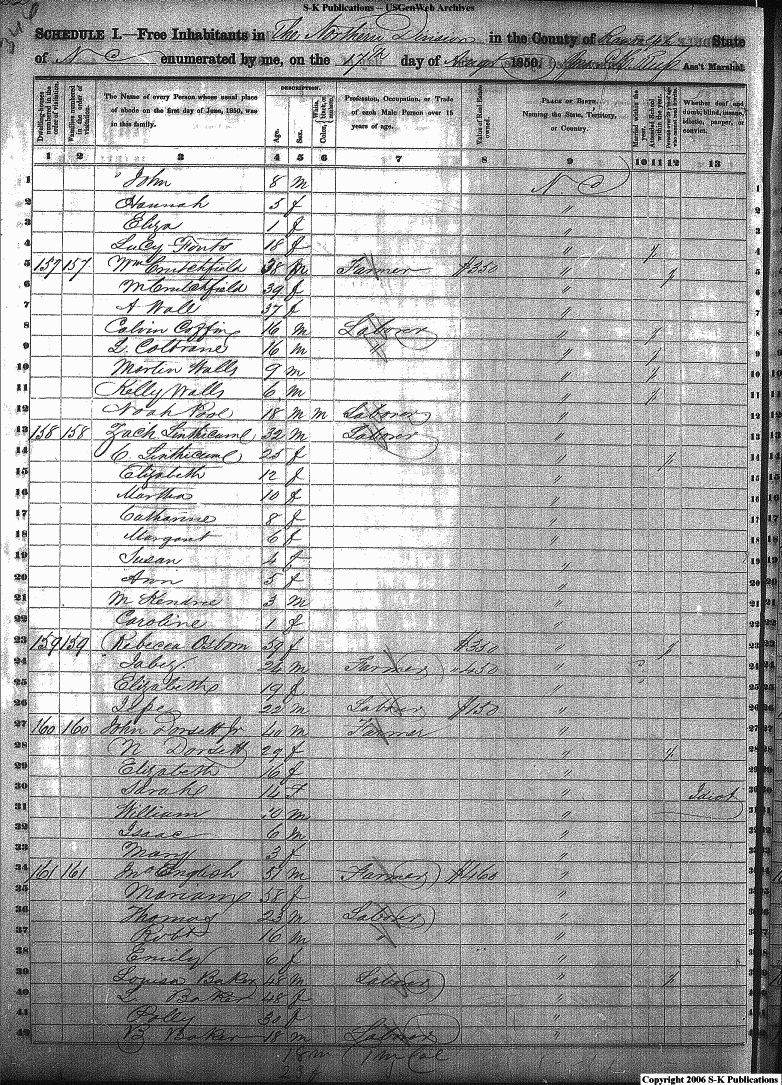 S-K Publications -- USGenWeb Archives
SCHEDULE I.—Free Inhabitants in The Northern Division in the County of Randolph State
of N C enumerated by me, on the 17th day of Augt 1850. Ass't Marshal
Dwelling-houses numbered in the order of visitation.
Families numbered in the order of visitation.
The Name of every Person whose usual place of abode on the first day of June, 1850, was in this family.
DESCRIPTION.
Age.
Sex.
Color, White, black, or mulatto.
Profession, Occupation, or Trade of each Male Person over 15 years of age.
Value of Real Estate owned.
PLACE OF BIRTH. Naming the State, Territory, or Country.
Married within the year.
Attended School within the year.
Whether deaf and dumb, blind, insane, idiotic, pauper, or convict.
1 2 3 4 5 6 7 8 9 10 11 12 13
1 John 8 m N C 1
2 Hannah 5 f " 2
3 Eliza 1 f " 3
4 Lucy Fouts 18 f " / 4
5 157 157 Wm Crutchfield 38 m Farmer $350 " / 5
6 M Crutchfield 39 f " 6
7 A Wall 37 f " 7
8 Calvin Coffin 16 m Laborer " / 8
9 L. Coltrane 16 m " " / 9
10 Martin Walls 9 m " / 10
11 Kelly Walls 6 m " / 11
12 Noah 18 m m Laborer " 12
13 158 158 Zach Linthicum 32 m Laborer " 13
14 C. Linthicum 25 f " / 14
15 Elizabeth 12 f " 15
16 Martha 10 f " 16
17 Catharine 8 f " 17
18 Margaret 6 f " 18
19 Susan 4 f " 19
20 Ann 5 f " 20
21 M Kendree 3 m " 21
22 Caroline 1 f " 22
23 159 159 Rebecca Osborn 59 f $350 " / 23
24 Jabez 26 m Farmer 450 " 24
25 Elizabeth 19 f " 25
26 22 m Laborer $150 " 26
27 160 160 John Dorsett Jr 40 m Farmer " 27
28 N Dorsett 29 f " / 28
29 Elizabeth 16 f " 29
30 Sarah 14 F " Idiot 30
31 William 10 m " 31
32 Isaac 6 m " 32
33 Mary 3 f " 33
34 161 161 Jno English 51 m Farmer $460 " 34
35 Mariam 58 f " 35
36 Thomas 23 m Laborer " 36
37 Robt 16 m " " 37
38 Emily 6 f " 38
39 Louisa Baker 48 m Laborer " / 39
40 L. Baker 48 f " 40
41 Polly 30 f " 41
42 B Baker 18 m Laborer " 42
18 m 1 m Col
23 f
Copyright 2006 S-K Publications